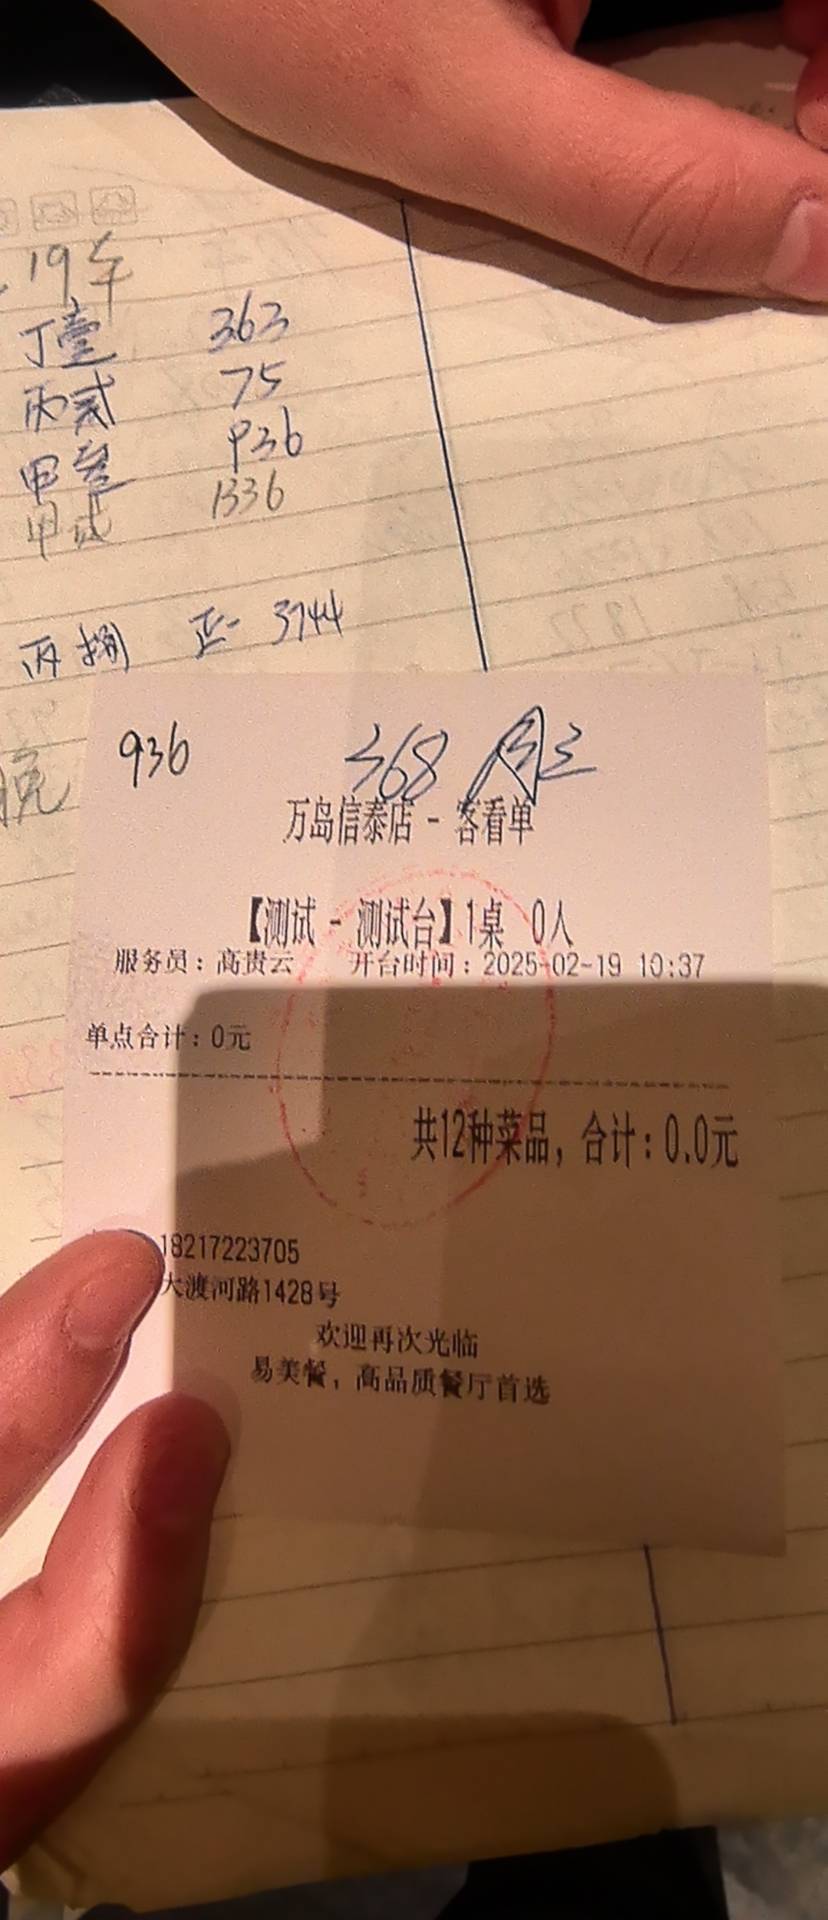 .19午
丁壹 363
丙贰 75
甲叁 936
甲贰 1336
丙捌 正一 3744
晚
936 368
万岛信泰店 - 客看单
【测试 - 测试台】1桌 0人
服务员：高贵云 开台时间：2025-02-19 10:37
单点合计：0元
共12种菜品，合计：0.0元
18217223705
大渡河路1428号
欢迎再次光临
易美餐，高品质餐厅首选